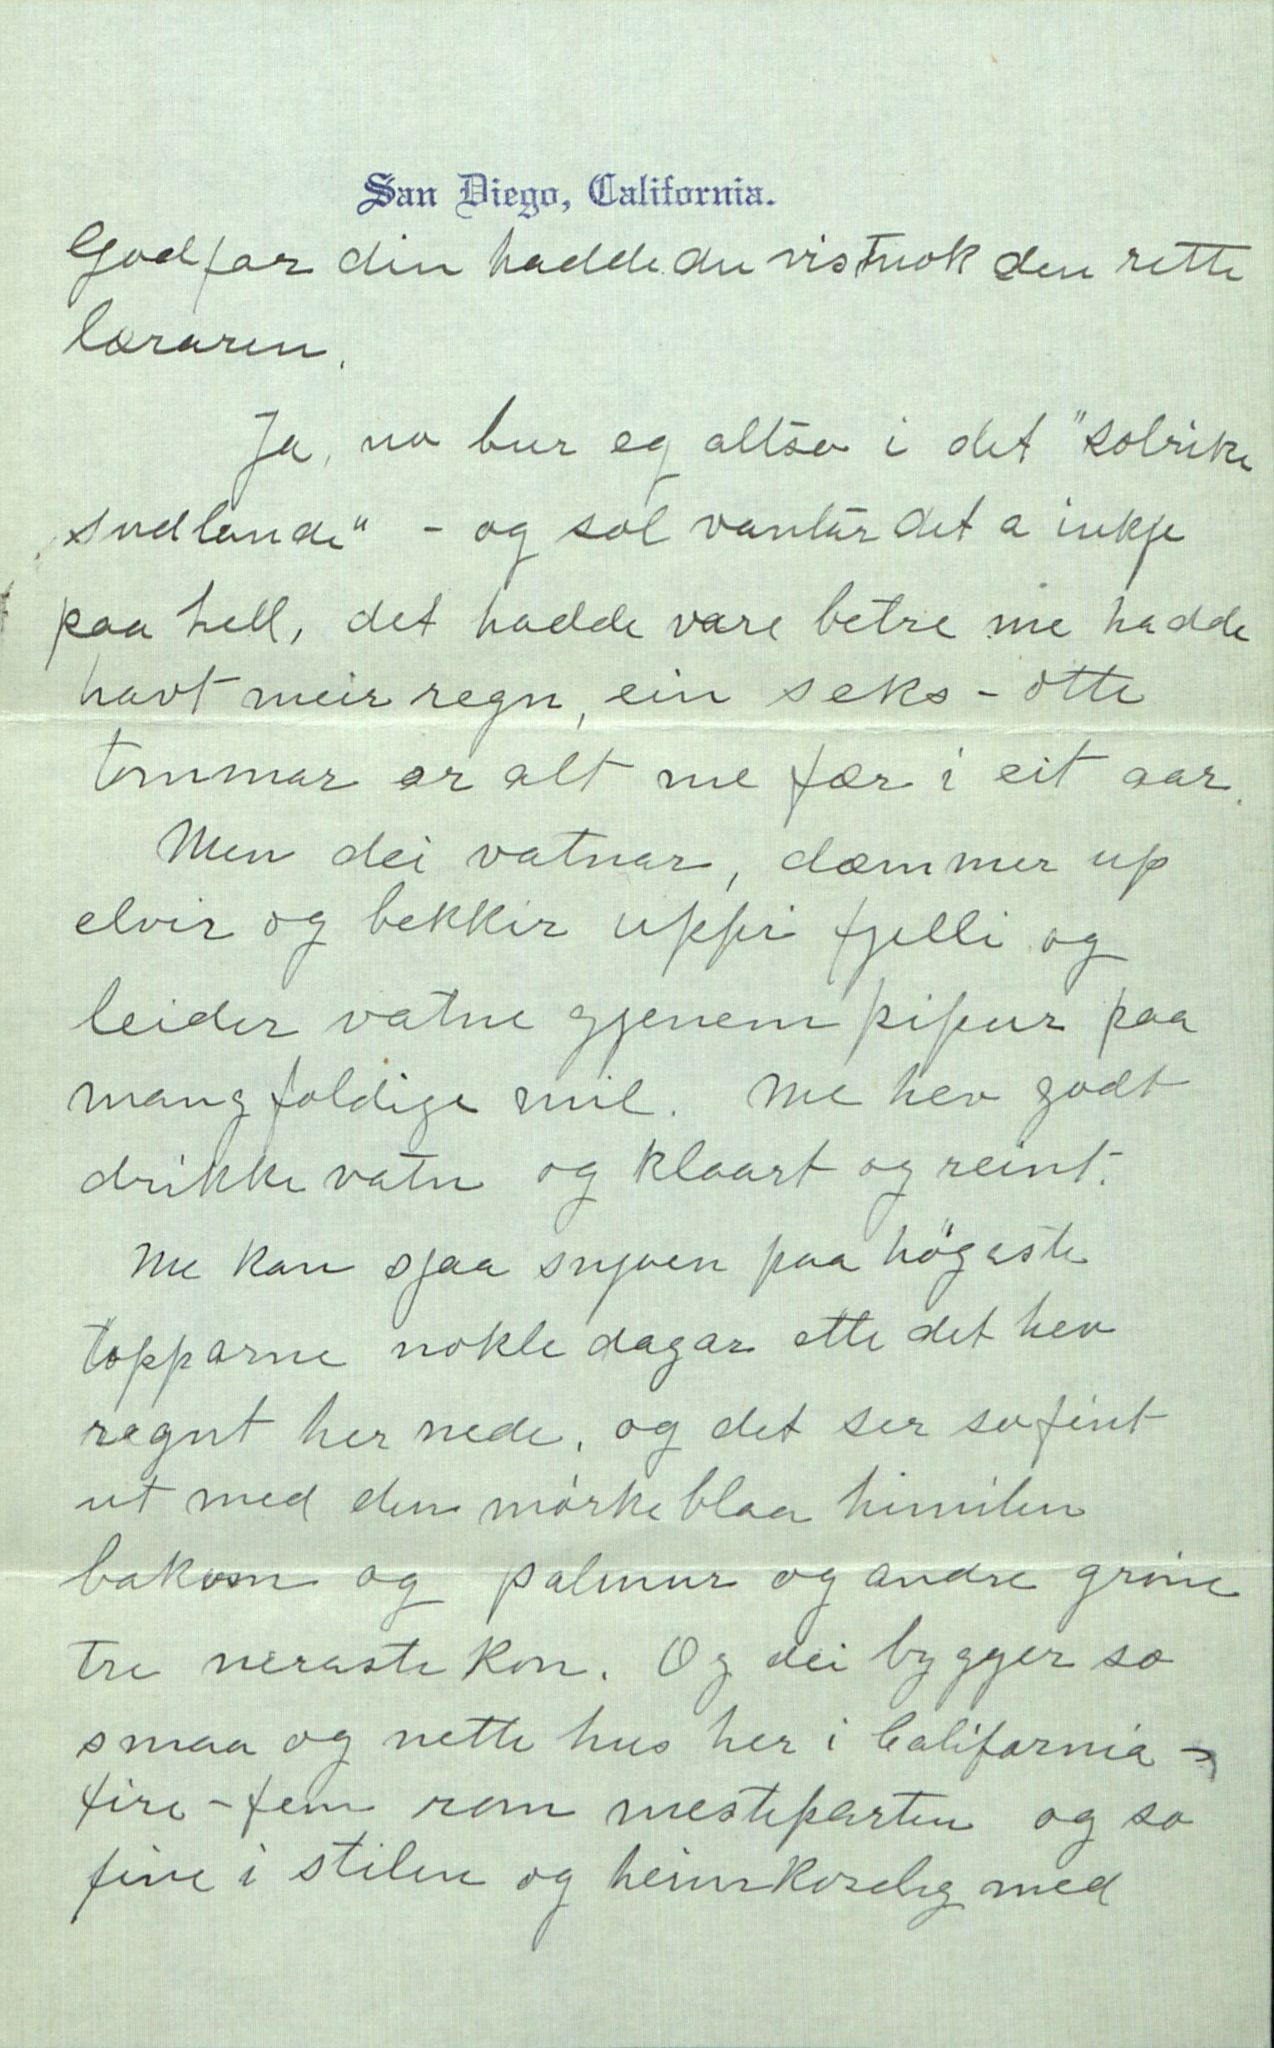 San Diego, California.
Godfar din hadde du vistnok den rette
læraren.
Ja, no bur eg altso i det "solrike
sudlande" - og sol vantar det a inkje
paa hell, det hadde vare betre me hadde
havt meir regn, ein seks - otte
tommar er alt me fær i eit aar.
Men dei vatnar, dæmmer up
elvir og bekkir uppi fjelli og
leider vatne gjenem pipur paa
mangfoldige mil. Me hev godt
drikkevatn og klaart og reint.
Me kan sjaa snjoen paa högaste
topparne nokle dagar ette det hev
regnt her nede, og det ser so fint
ut med den mörkeblaa himilen
bakom og palmur og andre gröne
tre neraste kon. Og dei bygger so
smaa og nette hus her i California -
fire - fem rom mesteparten og so
fine i stilen og heimkoseleg med